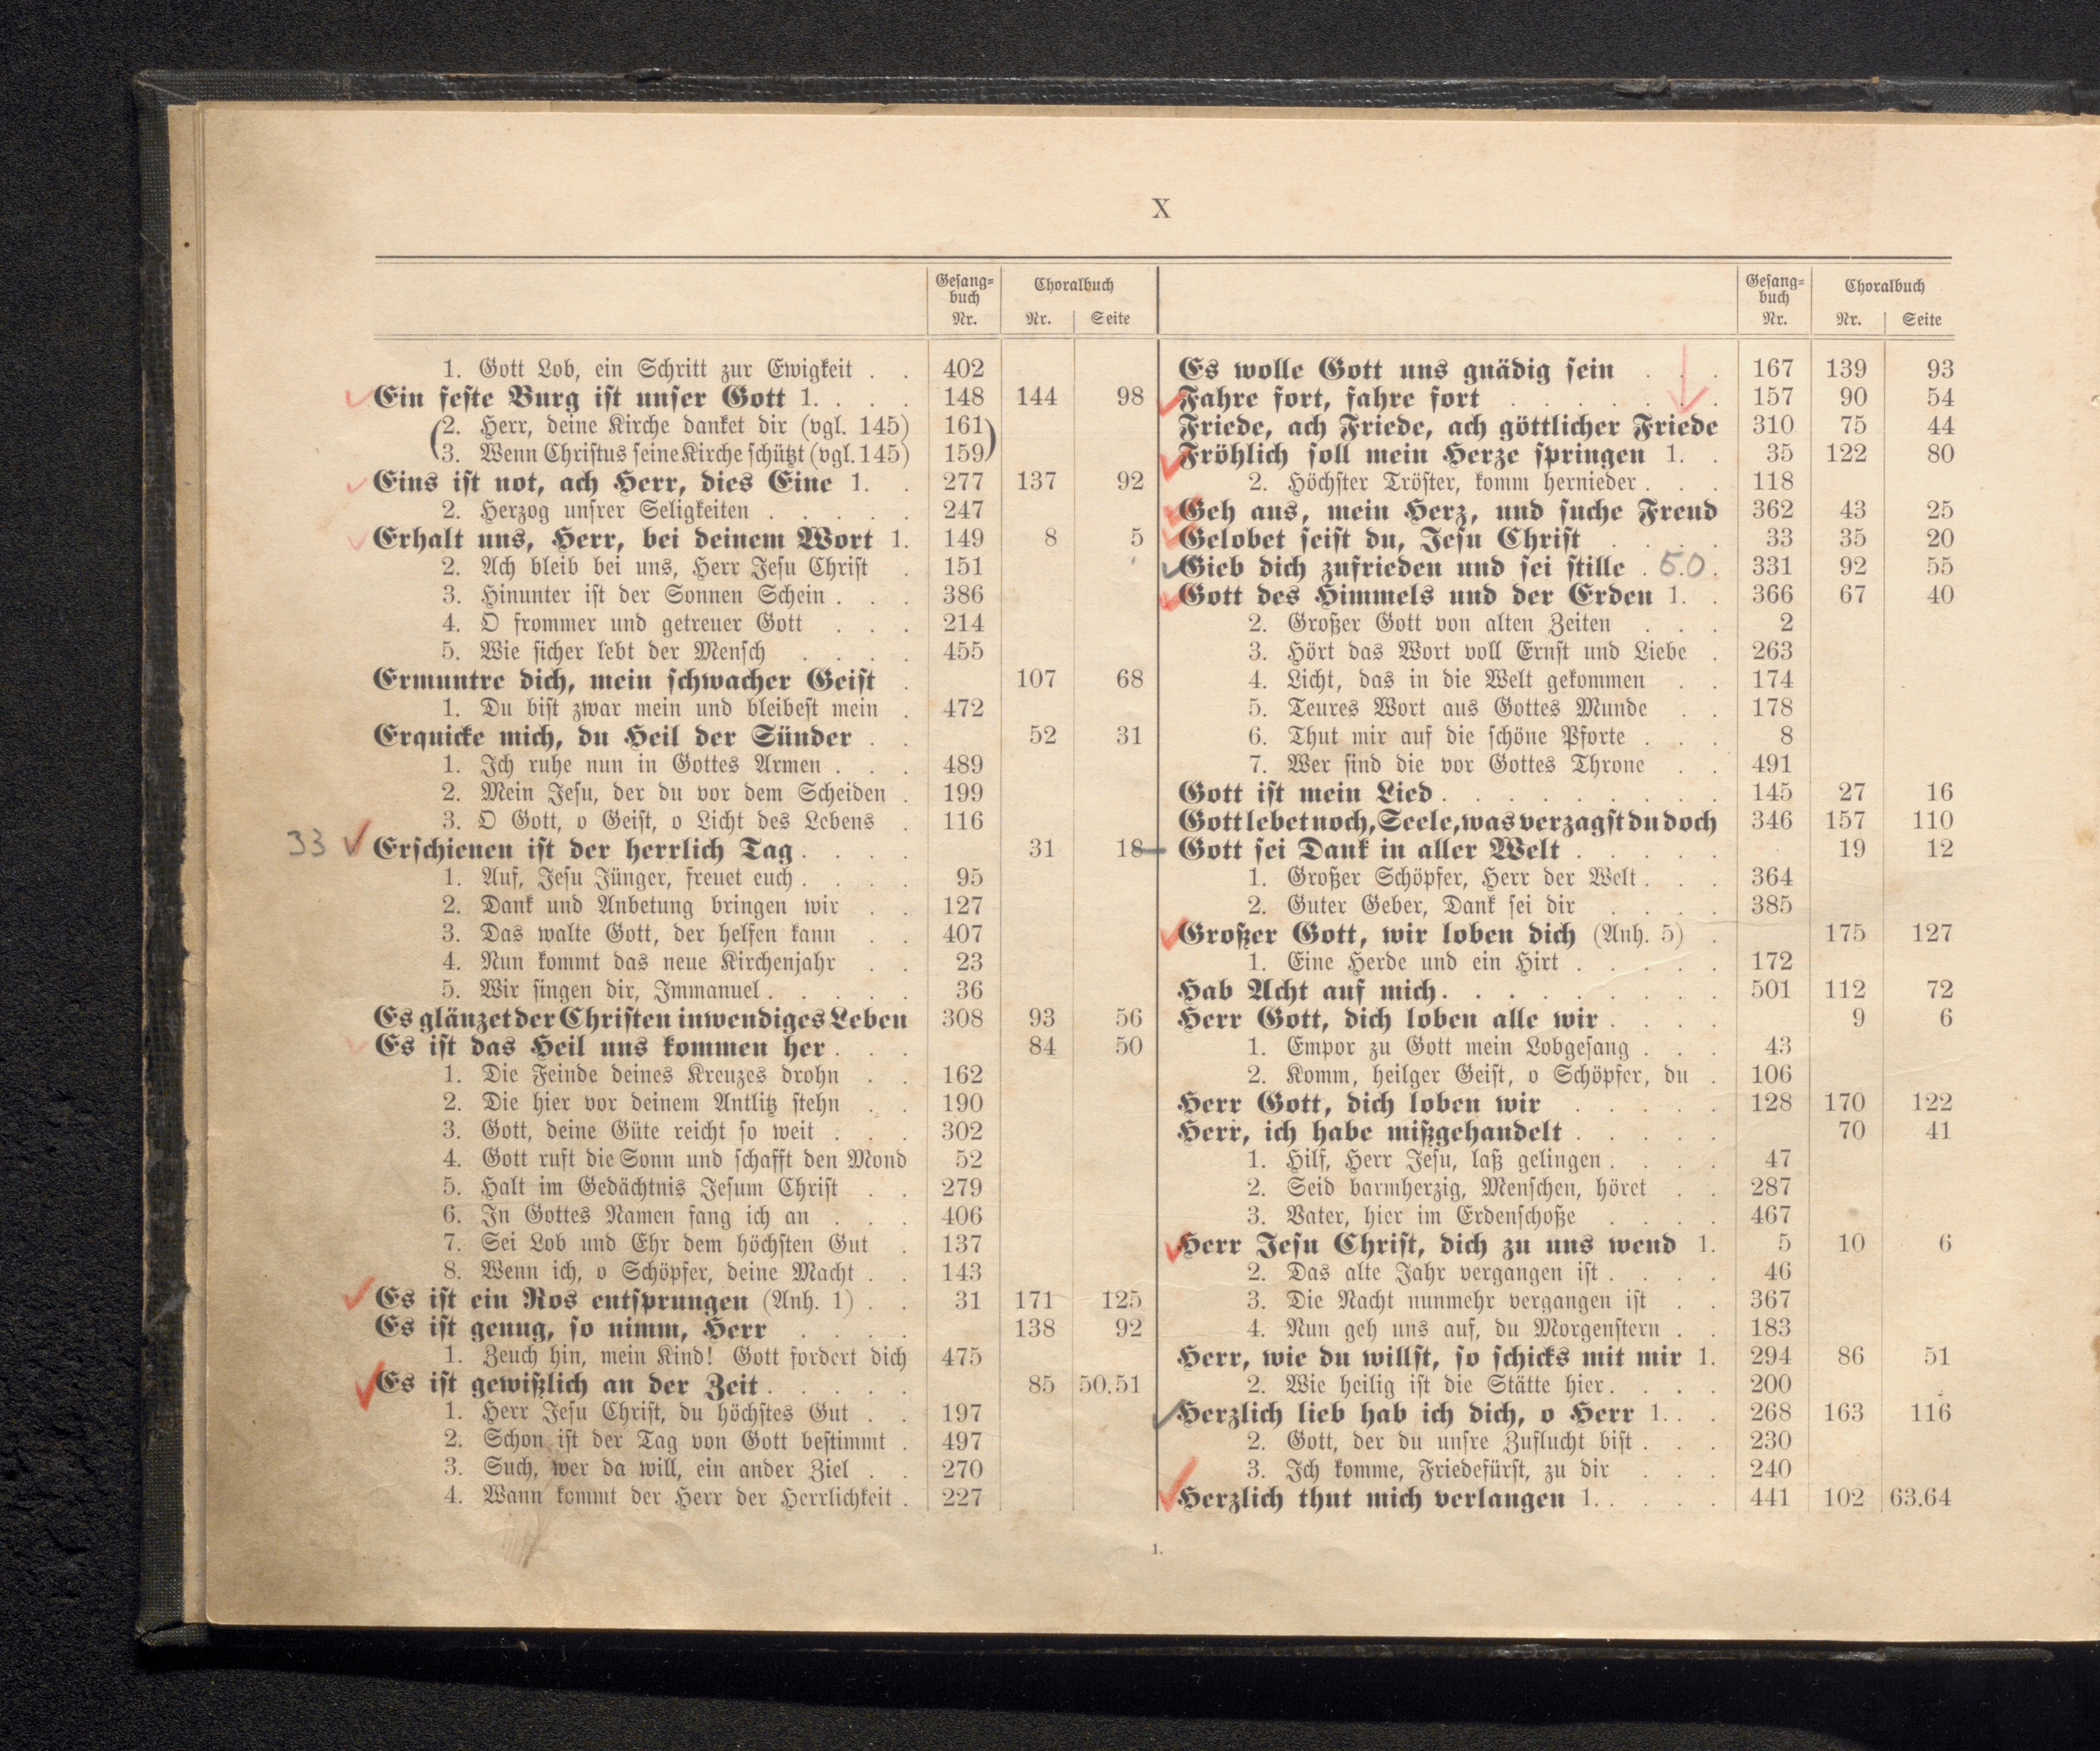 X
Gesang-
buch
Nr.
Choralbuch
Nr. Seite
1. Gott Lob, ein Schritt zur Ewigkeit . . 402
Ein feste Burg ist unser Gott 1. . . . 148 144 98
(2. Herr, deine Kirche danket dir (vgl. 145) 161)
(3. Wenn Christus seine Kirche schützt (vgl. 145) 159)
Eins ist not, ach Herr, dies Eine 1. . 277 137 92
2. Herzog unsrer Seligkeiten . . . . . 247
Erhalt uns, Herr, bei deinem Wort 1. 149 8 5
2. Ach bleib bei uns, Herr Jesu Christ . 151
3. Hinunter ist der Sonnen Schein . . . 386
4. O frommer und getreuer Gott . . . 214
5. Wie sicher lebt der Mensch . . . . 455
Ermuntre dich, mein schwacher Geist . 107 68
1. Du bist zwar mein und bleibest mein . 472
Erquicke mich, du Heil der Sünder . . 52 31
1. Ich ruhe nun in Gottes Armen . . . 489
2. Mein Jesu, der du vor dem Scheiden . 199
3. O Gott, o Geist, o Licht des Lebens . 116
33 Erschienen ist der herrlich Tag . . . . 31 18
1. Auf, Jesu Jünger, freuet euch . . . . 95
2. Dank und Anbetung bringen wir . . 127
3. Das walte Gott, der helfen kann . . 407
4. Nun kommt das neue Kirchenjahr . . 23
5. Wir singen dir, Immanuel . . . . . 36
Es glänzet der Christen inwendiges Leben 308 93 56
Es ist das Heil uns kommen her . . . 84 50
1. Die Feinde deines Kreuzes drohn . . 162
2. Die hier vor deinem Antlitz stehn . . 190
3. Gott, deine Güte reicht so weit . . . 302
4. Gott ruft die Sonn und schafft den Mond 52
5. Halt im Gedächtnis Jesum Christ . . 279
6. In Gottes Namen fang ich an . . . 406
7. Sei Lob und Ehr dem höchsten Gut . 137
8. Wenn ich, o Schöpfer, deine Macht . . 143
Es ist ein Ros entsprungen (Anh. 1) . . 31 171 125
Es ist genug, so nimm, Herr . . . . 138 92
1. Zeuch hin, mein Kind! Gott fordert dich 475
Es ist gewißlich an der Zeit . . . . . 85 50.51
1. Herr Jesu Christ, du höchstes Gut . . 197
2. Schon ist der Tag von Gott bestimmt . 497
3. Such, wer da will, ein ander Ziel . . 270
4. Wann kommt der Herr der Herrlichkeit . 227
Gesang-
buch
Nr.
Choralbuch
Nr. Seite
Es wolle Gott uns gnädig sein . . . 167 139 93
Fahre fort, fahre fort . . . . . . . 157 90 54
Friede, ach Friede, ach göttlicher Friede 310 75 44
Fröhlich soll mein Herze springen 1. . 35 122 80
2. Höchster Tröster, komm hernieder . . . 118
Geh aus, mein Herz, und suche Freud 362 43 25
Gelobet seist du, Jesu Christ . . . . 33 35 20
Gieb dich zufrieden und sei stille . 50 . 331 92 55
Gott des Himmels und der Erden 1. . 366 67 40
2. Großer Gott von alten Zeiten . . . 2
3. Hört das Wort voll Ernst und Liebe . 263
4. Licht, das in die Welt gekommen . . 174
5. Teures Wort aus Gottes Munde . . 178
6. Thut mir auf die schöne Pforte . . . 8
7. Wer sind die vor Gottes Throne . . 491
Gott ist mein Lied . . . . . . . . . 145 27 16
Gott lebet noch, Seele, was verzagst du doch 346 157 110
Gott sei Dank in aller Welt . . . . . 19 12
1. Großer Schöpfer, Herr der Welt . . . 364
2. Guter Geber, Dank sei dir . . . . 385
Großer Gott, wir loben dich (Anh. 5) . 175 127
1. Eine Herde und ein Hirt . . . . . 172
Hab Acht auf mich . . . . . . . . . 501 112 72
Herr Gott, dich loben alle wir . . . . 9 6
1. Empor zu Gott mein Lobgesang . . . 43
2. Komm, heilger Geist, o Schöpfer, du . 106
Herr Gott, dich loben wir . . . . . 128 170 122
Herr, ich habe mißgehandelt . . . . . 70 41
1. Hilf, Herr Jesu, laß gelingen . . . . 47
2. Seid barmherzig, Menschen, höret . . 287
3. Vater, hier im Erdenschoße . . . . 467
Herr Jesu Christ, dich zu uns wend 1. 5 10 6
2. Das alte Jahr vergangen ist . . . . 46
3. Die Nacht nunmehr vergangen ist . . 367
4. Nun geh uns auf, du Morgenstern . . 183
Herr, wie du willst, so schicks mit mir 1. 294 86 51
2. Wie heilig ist die Stätte hier . . . . 200
Herzlich lieb hab ich dich, o Herr 1. . . 268 163 116
2. Gott, der du unsre Zuflucht bist . . . 230
3. Ich komme, Friedefürst, zu dir . . . 240
Herzlich thut mich verlangen 1. . . . . 441 102 63.64
1.